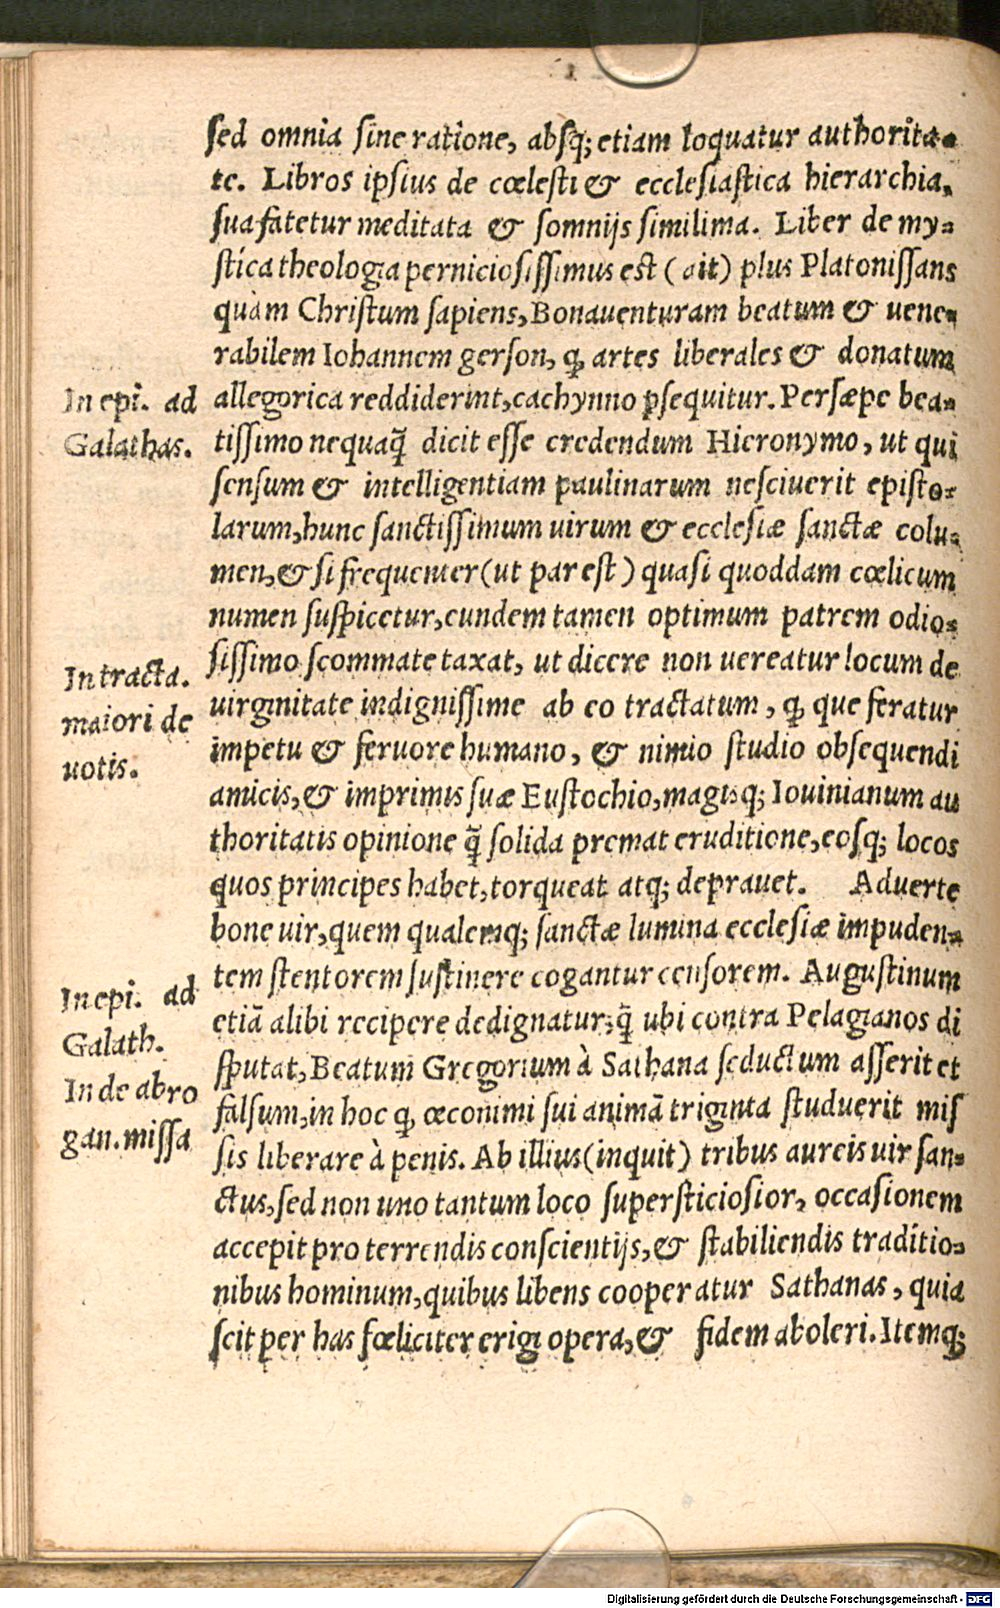 sed omnia sine ratione, absq; etiam loquatur authorita-
te. Libros ipsius de cœlesti & ecclesiastica hierarchia,
sua fatetur meditata & somnijs similima. Liber de my-
stica theologia perniciosissimus est (ait) plus Platonissans
quàm Christum sapiens, Bonauenturam beatum & uene-
rabilem Iohannem gerson, ꝙ artes liberales & donatum
In epi. ad
allegorica reddiderint, cachynno ꝑsequitur. Persæpe bea-
Galathas.
tissimo nequaq̃ dicit esse credendum Hieronymo, ut qui
sensum & intelligentiam paulinarum nesciuerit episto-
larum, hunc sanctissimum uirum & ecclesiæ sanctæ colu-
men, & si frequenter (ut par est) quasi quoddam cœlicum
numen suspicetur, eundem tamen optimum patrem odio-
sissimo scommate taxat, ut dicere non uereatur locum de
In tracta.
uirginitate indignissime ab eo tractatum, ꝙ que feratur
maiori de
impetu & feruore humano, & nimio studio obsequendi
uotis.
amicis, & imprimis suæ Eustochio, magisq; Iouinianum au
thoritatis opinione q̃ solida premat eruditione, eosq; locos
quos principes habet, torqueat atq; deprauet. Aduerte
bone uir, quem qualemq; sanctæ lumina ecclesiæ impuden-
tem stentorem sustinere cogantur censorem. Augustinum
In epi. ad
etiã alibi recipere dedignatur, q̃ ubi contra Pelagianos di
Galath.
sputat, Beatum Gregorium à Sathana seductum asserit et
In de abro
falsum, in hoc ꝙ œconimi sui animã triginta studuerit mis
gan. missa
sis liberare à penis. Ab illius (inquit) tribus aureis uir san-
ctus, sed non uno tantum loco supersticiosior, occasionem
accepit pro terrendis conscientijs, & stabiliendis traditio-
nibus hominum, quibus libens cooperatur Sathanas, quia
scit per has fœliciter erigi opera, & fidem aboleri. Itemq;
Digitalisierung gefördert durch die Deutsche Forschungsgemeinschaft - DFG